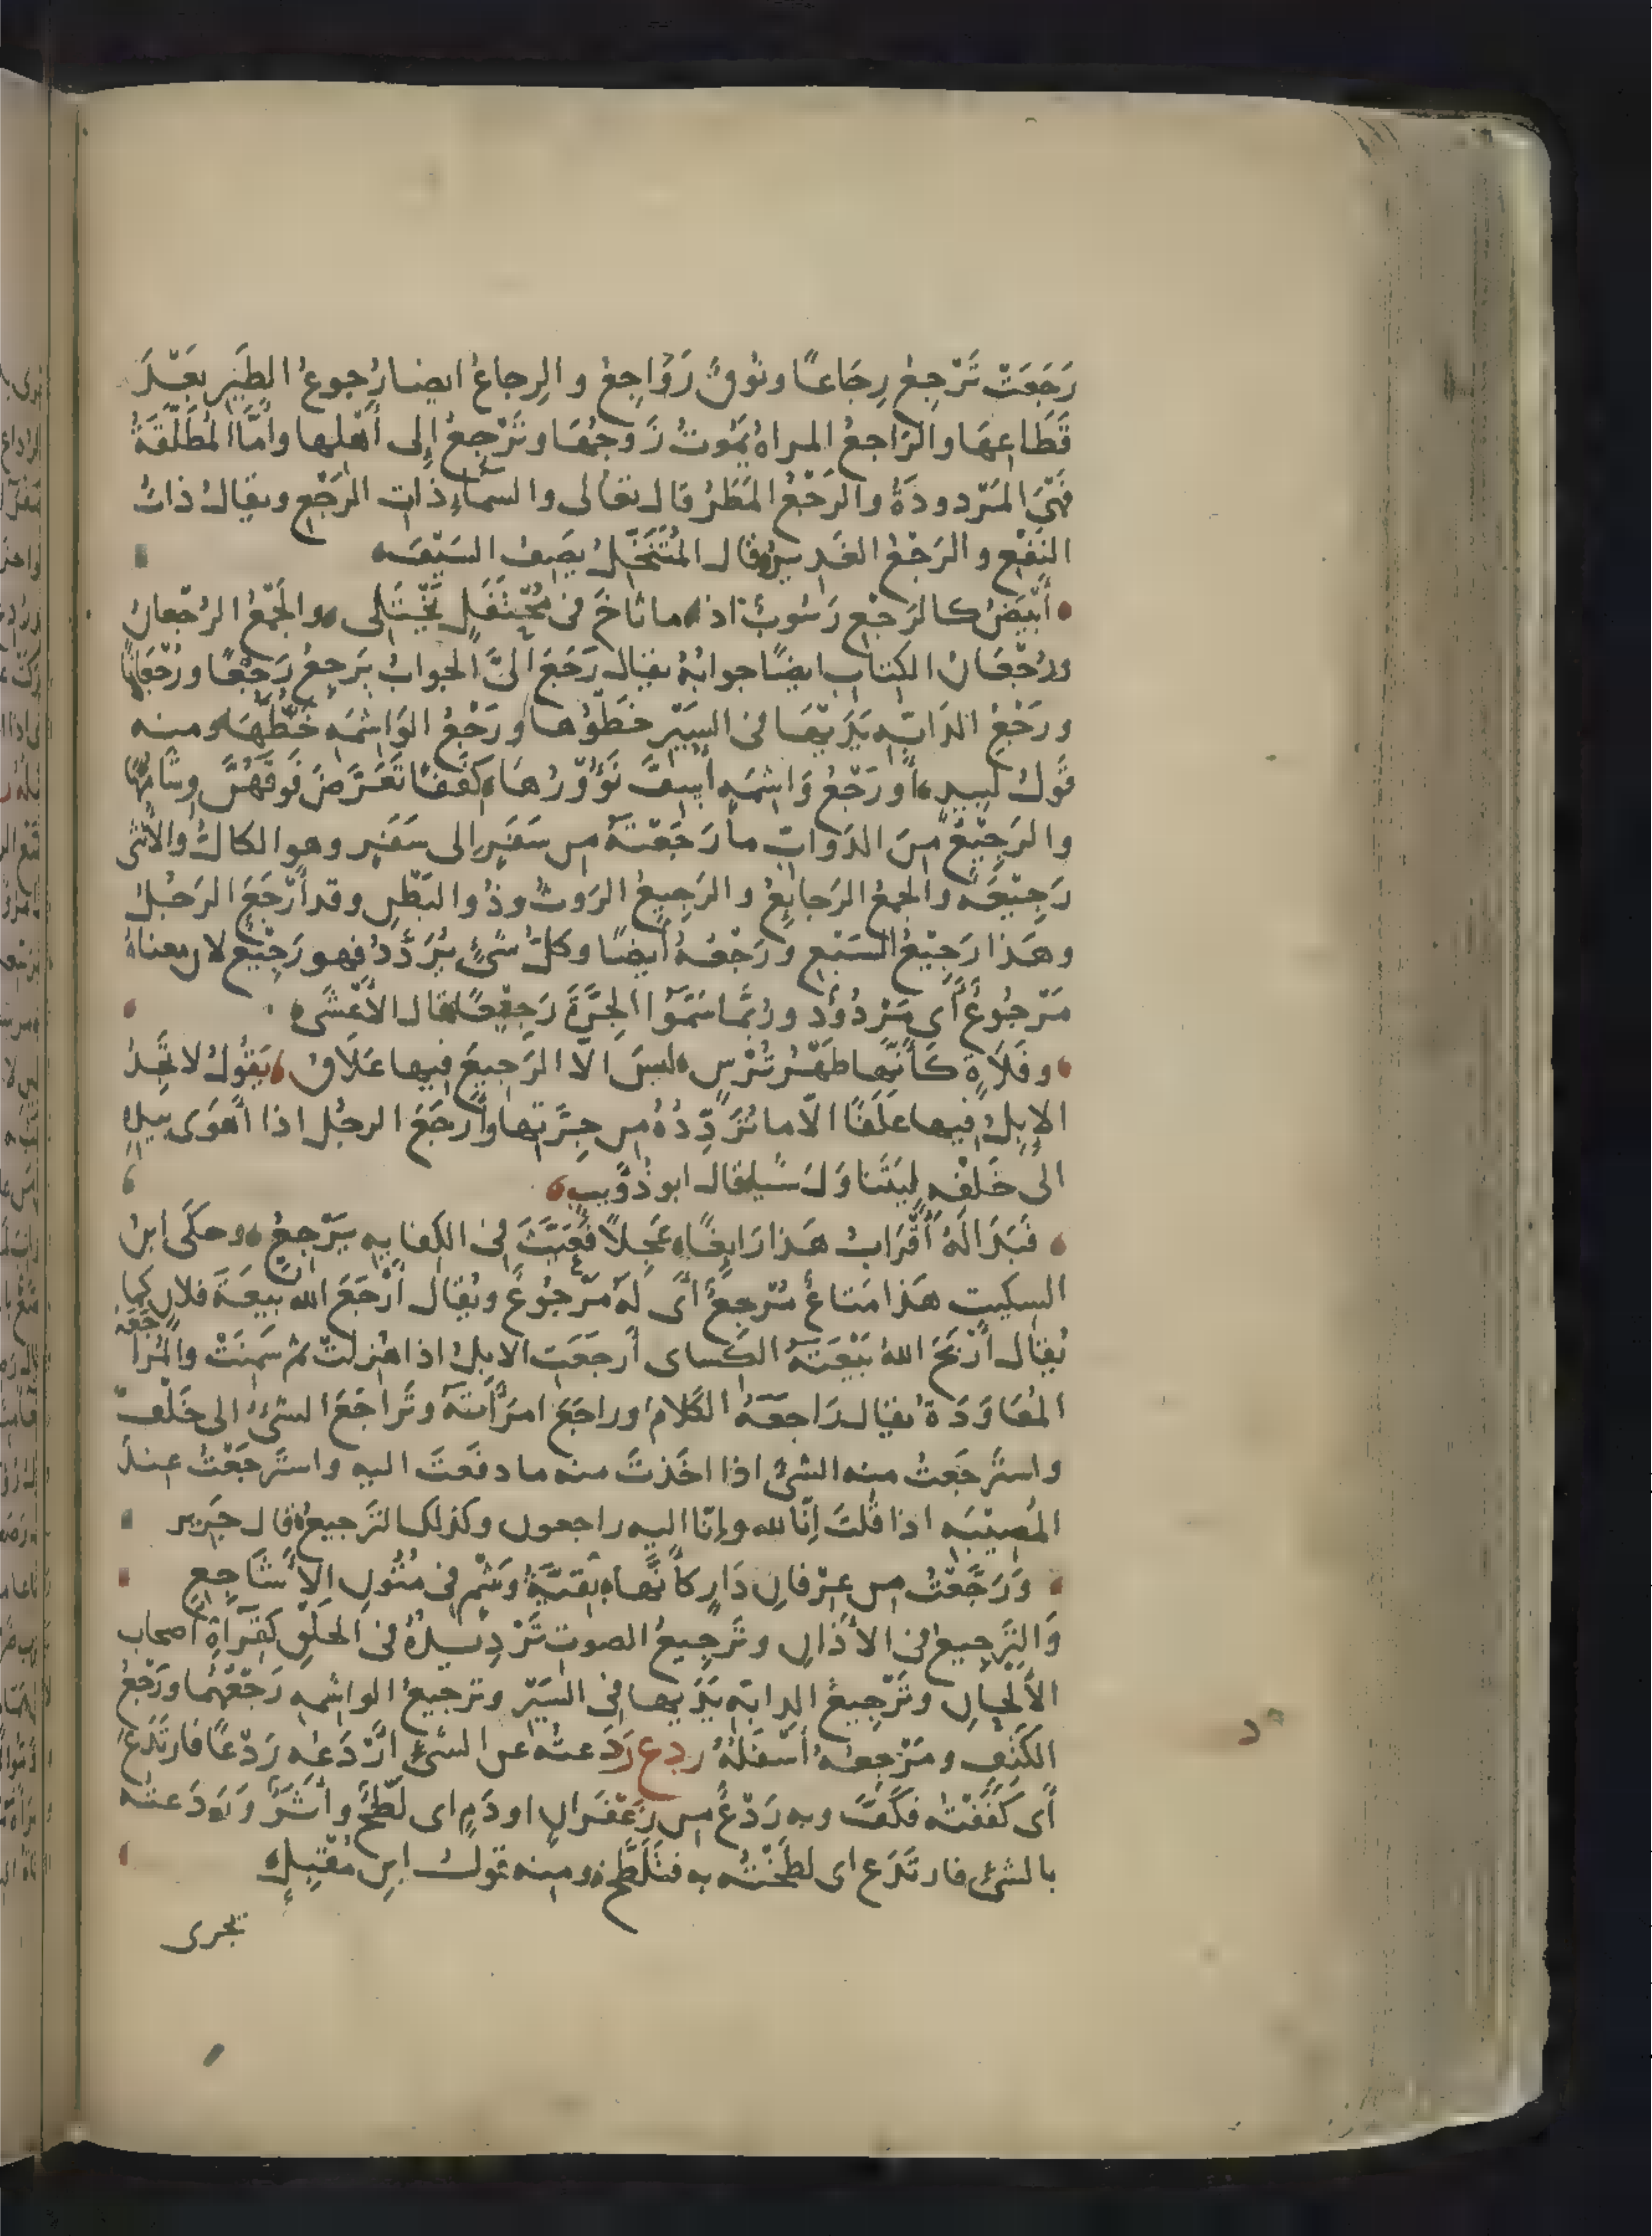 رَجَعَتْ تَرْجِعُ رِجَاعًا ونُوقٌ رَوَاجِعُ والرِجاعُ ايضا رُجوعُ الطَيْرِ بَعْدَ
قَطَاعِهَا والرَاجِعُ المراهُ يَمُوتُ زَوجُهَا وتَرْجِعُ إِلى أَهْلها وأَمَّا المُطَلَّقَةُ
فَهْىَ المَرْدودَةُ والرَجْعُ المَطَرُ قال تعالى والسمآءِ ذاتِ الرَجْعِ ويقالُ ذاتُ
النَفْعِ والرَجْعُ الغَدِيرُ وقال المُتَنَخِّلُ يصَِفُ السَيْفَ
أَبْيَضُ كالرَجْعِ رَسُوبٌ اذا ما ثاخَ فى مُحْتَفَلٍ يَخْتَلى والجَمْعُ الرُجْعانُ
ورُجْعَانُ الكِتابِ ايضًا جوابُهُ يقال رَجَعَ الىَّ الجوابُ يَرجِعُ رَجْعًا ورُجْعَانًا
ورَجْعُ الدَابّهِ يَدَيْهَا فى السَيْرِ خَطْوُها ورَجْعُ الوَاشِمَهِ خَطُّهَا ومنه
قَولُ لَبيدٍ أَو رَجْعُ وَاشِمَهٍ أُسِفَّ نَؤُوْرُهَا كَفَفًا تَعَرَّضَ فَوقَهُنَّ وِشَامُهَا
والرَجِيْعُ مِنَ الدَوابِّ ما رَجَعْتَهُ من سَفَرٍ الى سَفَرٍ وهو الكالُّ والأُنْثى
رَجِيْعَه والجمعُ الرَجايعُ والرَجِيعُ الرَوثُ وذُو البَطْنِ وقد أَرْجَعَ الرَجُلُ
وهَذا رَجِيْعُ السَبُعِ ورَجْعُهُ أَيضًا وكلُّ شَىْءٍ يُرَدَّدُ فهو رَجِيْعٌ لان معناهُ
مَرْجُوعٌ أَى مَرْدُوْدٌ ورُبَّما سَمَّوا الجِرَّةَ رَجِيْعًا قال الأَعْشَى
وفَلَاةٍ كَأَنَّها ظَهْرُ تُرْسٍ ليسَ الّا الرَجِيعَ فيها عَلَاقُ يَقُولُ لا تَجِدُ
الإِبِلُ فيها عَلَقًا الّا ما تُرَدِّدُهُ من جِرَّتِها وأَرجَعَ الرجُل اذا أَهْوَى بيدِهِ
الى خَلفِهِ لِيَتَناوَلَ شَيا قال ابو ذُؤيبٍ
فَبَدَا لَهُ أَقْرَابُ هَذا رَايِغًا عَجِلًا فَعَيَّثَ فى الكِنايهِ يُرْجِعُ وحكَى ابنُ
السكيتِ هَذا مَتاعٌ مُرْجِعٌ أَى لَهُ مَرْجُوعٌ ويُقال أَرْجَعَ الله بَيعَةَ فلان كما
يُقال أَرْبَحَ اللهُ بَيْعَتَهُ الكِساى أَرجَعَتِ الابِلُ اذا هُزلَتْ ثم سَمِنَتْ والمُراجَعَهُ
المُعَاوَدَة يقال رَاجعَهُ الكَلامُ وراجَعَ امرَأَتَهُ وتَراجَعَ الشىُ الى خَلْفٍ
واسترجَعتُ منه الشىْءَ اذا اخَذتَ منه ما دفَعتَ اليه واستَرجَعْتُ عِندَ
المُصِيْبَهِ اذا قُلتَ اِنّا لله وإنّا اليه راجعون وكذلك الترَجيعُ قال جَرير
وَرَجَّعْتُ من عِرْفانِ دَارٍ كأَنَّها بَقيَّةُ وَشْمٍ فى مُتُونِ الأَشَاجِعِ
وَالتَرجِيعُ فى الأَذانِ وتَرجِيعُ الصوتِ تَرْدِيدُهُ فى الحَلْقِ كَقِرآءَةِ اصحاب
الأَلْحانِ وتَرْجِيعُ الدابّهِ يَدَيها فى السَيْرِ وترجيعُ الواشمهِ رَجْعُهُما ورَجْعُ
الكَتِفِ ومَرْجِعُهُ أَسْفَلُهُ ردع رَدَعتُه عن الشىْءِ ارْدَعُه رَدْعًا فارتَدَعَ
أَى كَفَفْتُه فكَفَّ وبه رَدْعٌ من زَعْفَرانٍ او دَمٍ اى لَطْخٌ وأَثَرٌ ورَدَعتُه
بالشىْءِ فارتَدَع اى لطَخْتُه به فتَلَطَّخ ومنه قولُ ابنِ مُقْبِلٍ
تجرى
د